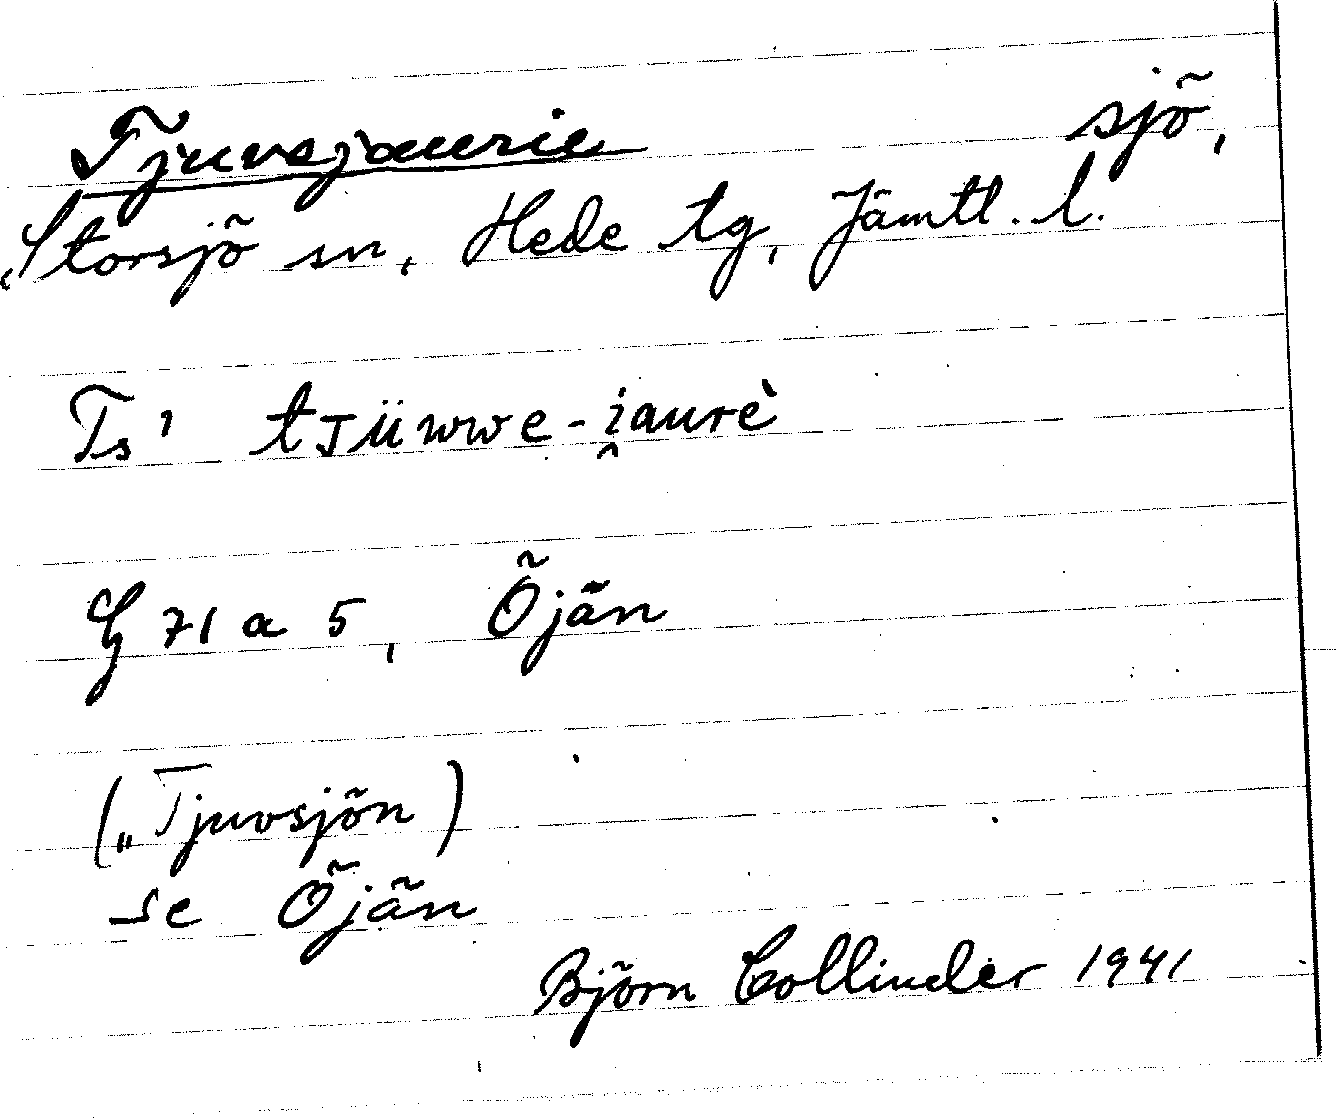 Tjuvsjaurie sjö,
Storsjö sn, Hede tg, Jämtl. l.
Ts' tjüwwe-i̯aurè
G 71 a 5, Öjån
(„Tjuvsjön)
se Öjån
Björn Collinder 1941